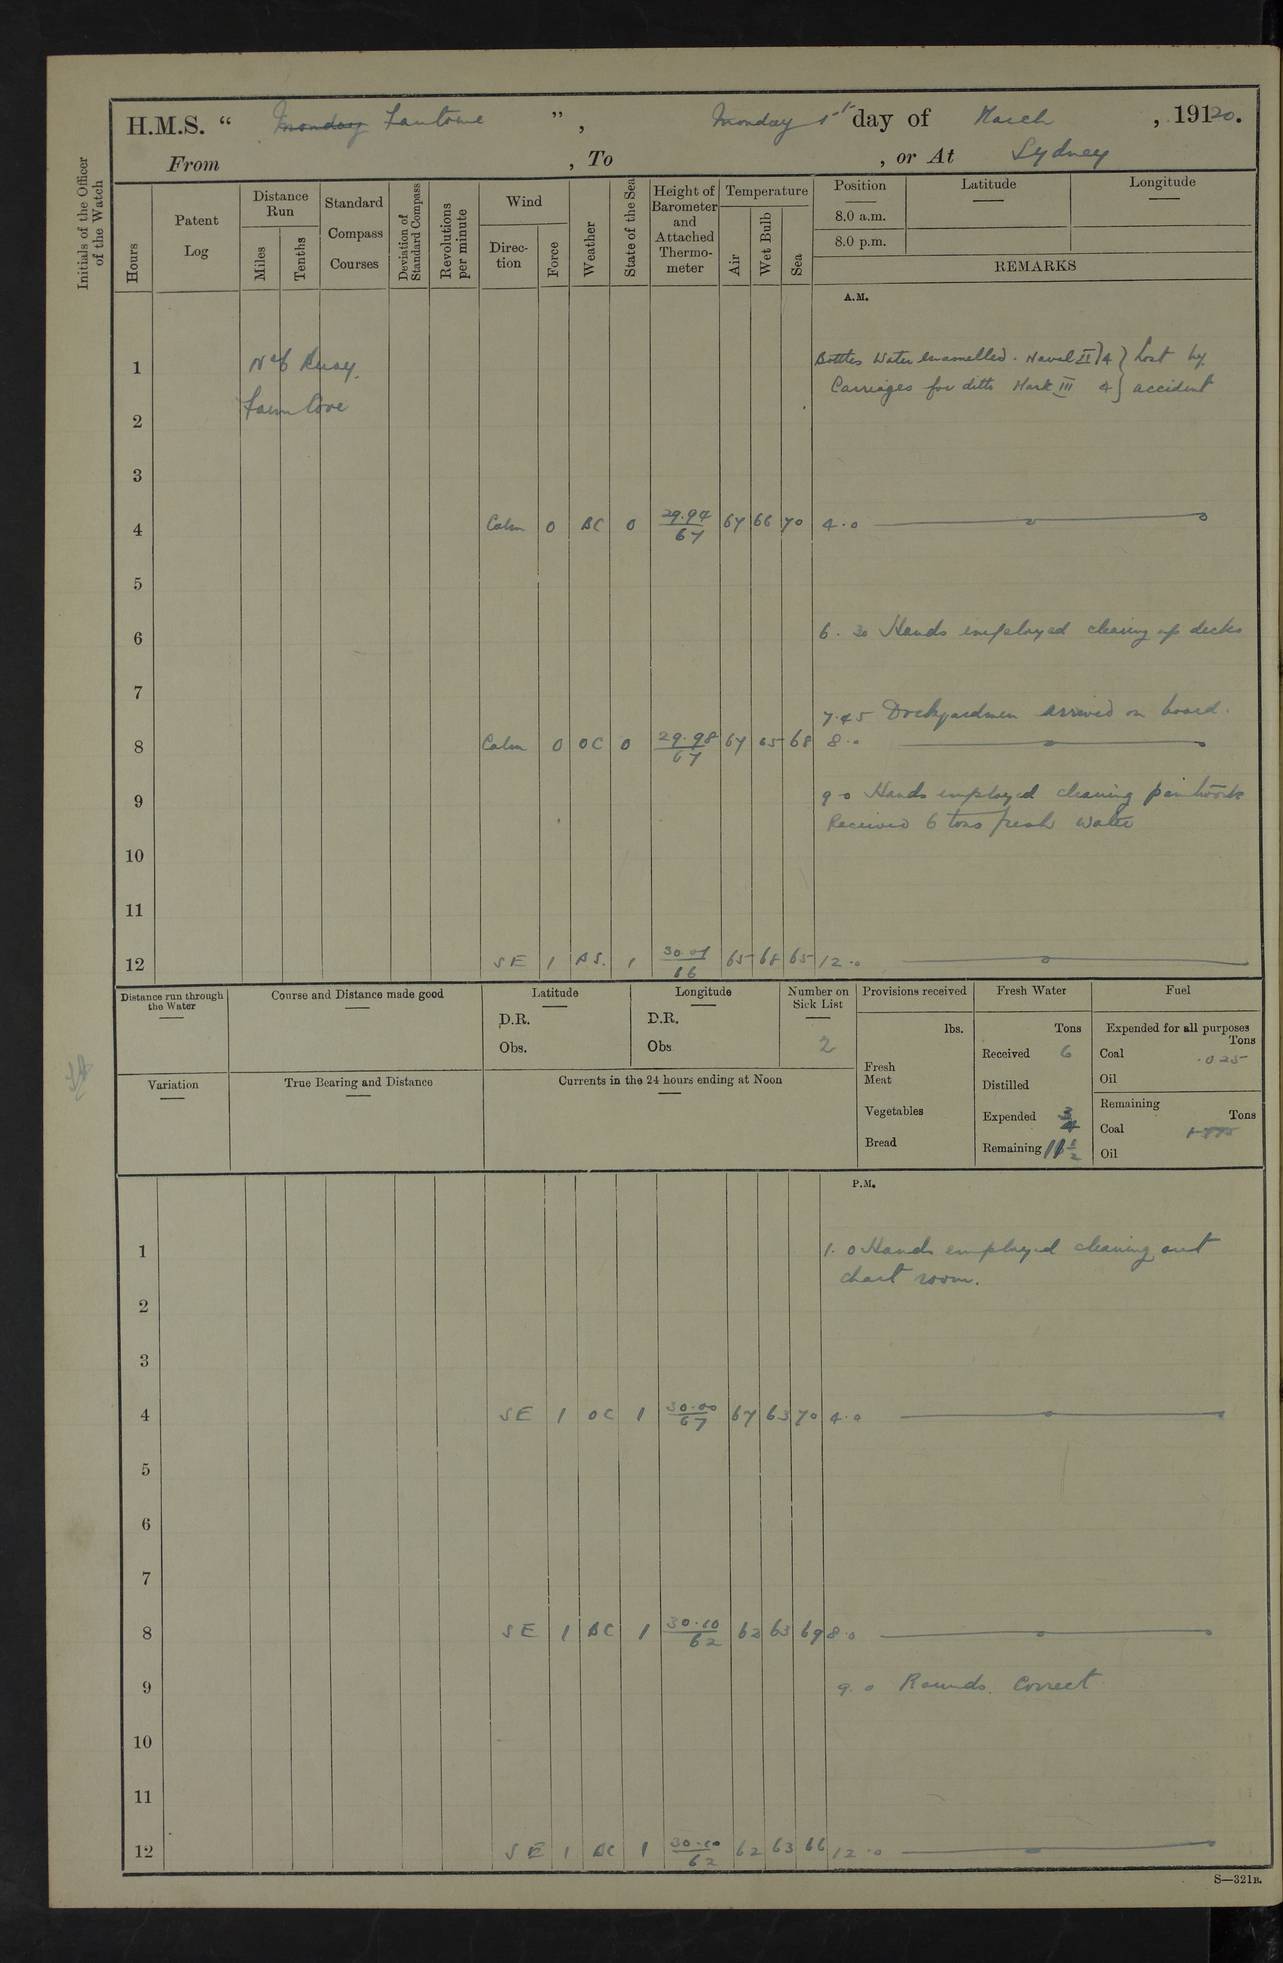 H.M.S. “ Monday Fantome ” , Monday 1st day of March , 19120.
From , To , or At Sydney
Initials of the Officer of the Watch
Hours
Patent Log
Distance Run
Miles
Tenths
Standard Compass Courses
Deviation of Standard Compass
Revolutions per minute
Wind
Direction
Force
Weather
State of the Sea
Height of Barometer and Attached Thermometer
Temperature
Air
Wet Bulb
Sea
Position
8.0 a.m.
8.0 p.m.
Latitude
Longitude
REMARKS
A.M.
1 No 6 Buoy. Bottles Water Enamelled. Naval II) 4 } Lost by
Farm Cove Carriages for ditto Mark III 4 } accident
2
3
4 Calm 0 BC 0 29.94/67 67 66 70 4.0
5
6 6.30 Hands employed cleaning up decks
7
7.45 Dockyardmen arrived on board.
8 Calm 0 OC 0 29.98/67 67 65 68 8.0
9 9-0 Hands employed cleaning paintwork
Received 6 tons fresh water
10
11
12 SE 1 1 66 65 68 65 12.0
Distance run through the Water
Course and Distance made good
Latitude
D.R.
Obs.
Longitude
D.R.
Obs
Number on Sick List
2
Provisions received
lbs.
Fresh Meat
Vegetables
Bread
Fresh Water
Tons
Received 6
Distilled
Expended 3/4
Remaining 11 1/2
Fuel
Expended for all purposes
Tons
Coal .025
Oil
Remaining
Tons
Coal
Oil
Variation
True Bearing and Distance
Currents in the 24 hours ending at Noon
P.M.
1 1.0 Hands employed cleaning out
chart room.
2
3
4 SE 1 OC 1 30.00/67 67 63 70 4.0
5
6
7
8 SE 1 BC 1 30.10/62 62 63 69 8.0
9 9.0 Rounds. Correct
10
11
12 SE 1 BC 1 30.10/62 62 63 66 12.0
S—321B.